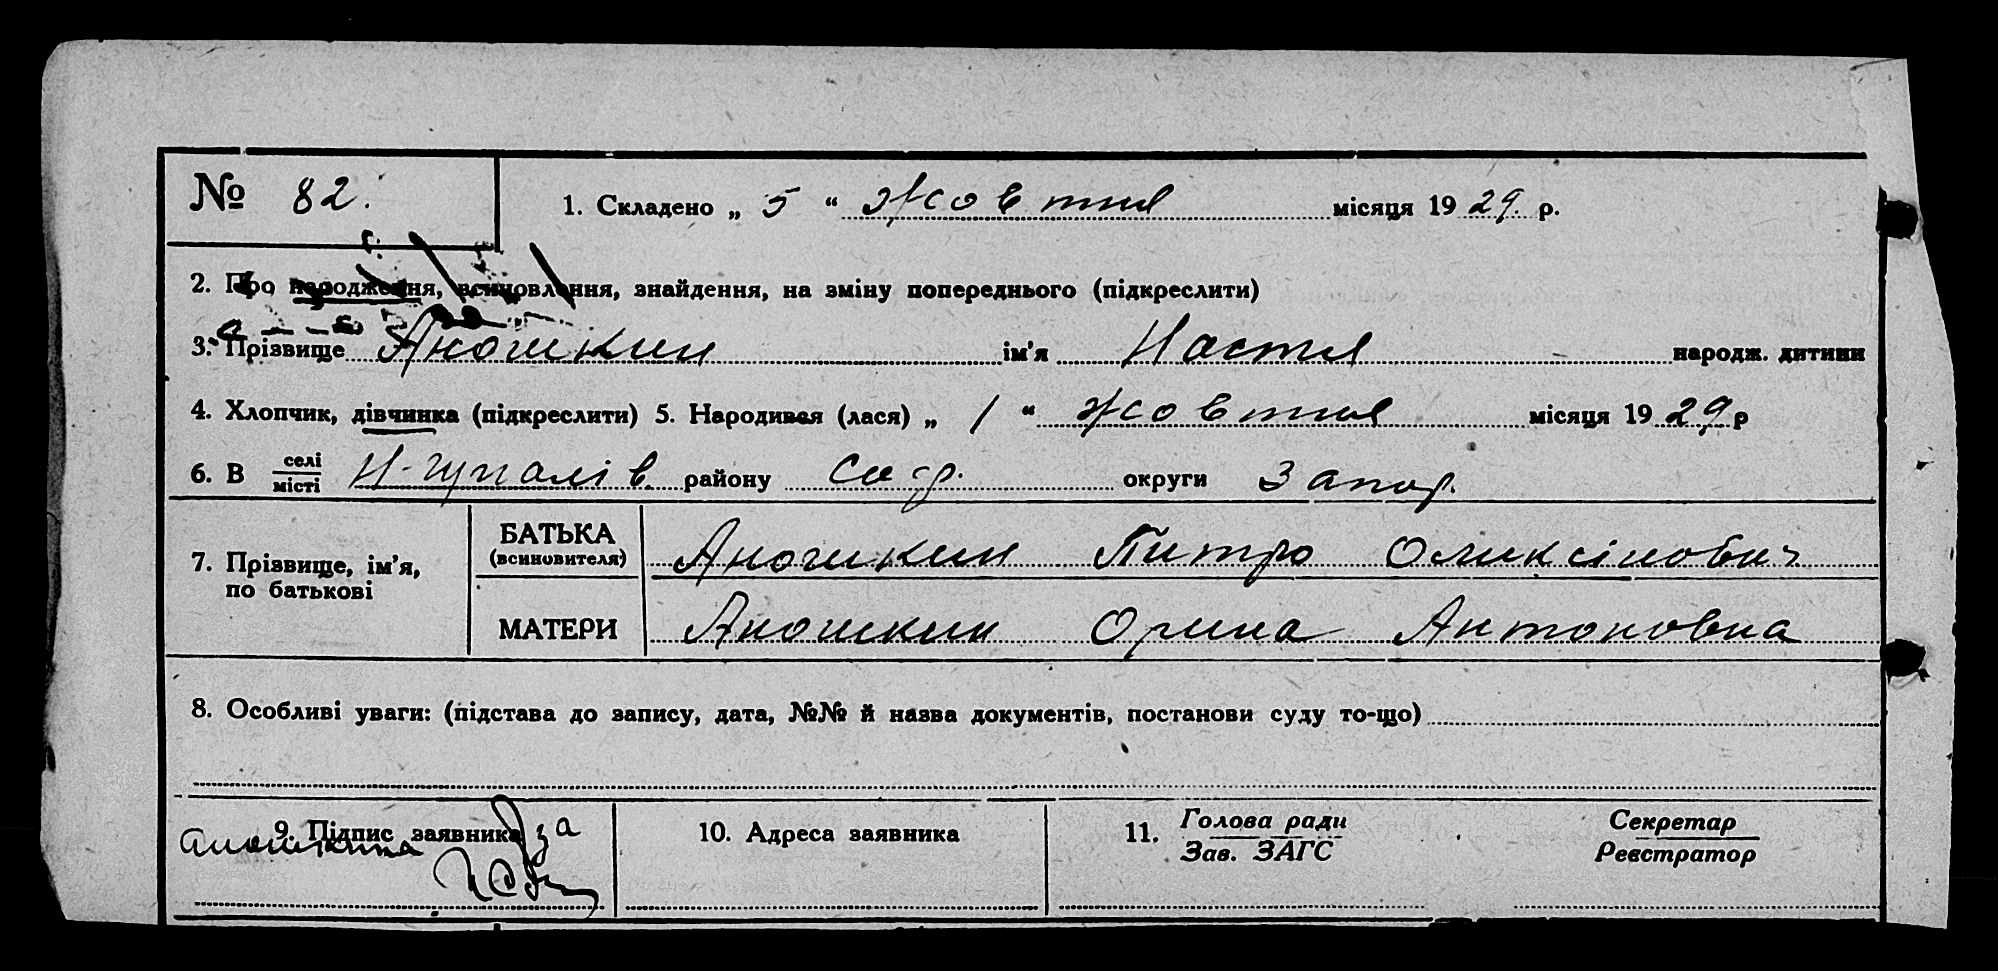 № 82. 1. Складено „ 5 “ Жовтня місяця 1929. р.
2. Про народження, всиновлення, знайдення, на зміну попереднього (підкреслити)
3. Прізвище Аношкин ім’я Настя народж. дитини
4. Хлопчик, дівчинка (підкреслити) 5. Народився (лася) „ 1 “ жовтня місяця 1929 р
6. В селі місті Н-гупалів. району Со-д. округи Запор.
7. Прізвище, ім’я, по батькові
БАТЬКА (всиновителя) Аношкин Питро Оликсійович
МАТЕРИ Аношкин Орина Антоновна
8. Особливі уваги: (підстава до запису, дата, №№ й назва документів, постанови суду то-що)
9. Підпис заявника 10. Адреса заявника 11. Голова ради Секретар
Зав. ЗАГС Реєстратор
Аношкина за